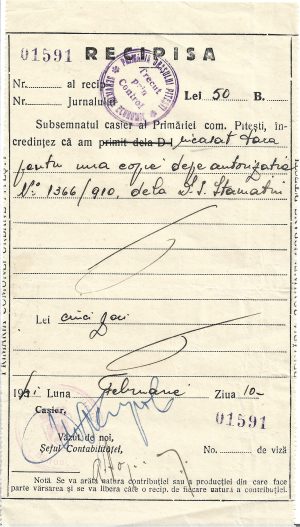 01591 RECIPISA
PRIMARIA ORAȘULUI PITEȘTI
SERVICIUL ECONOMIC
Trecut prin Control
Nr. al recip
Nr. Jurnalului Lei 50 B.
Subsemnatul casier al Primăriei com. Pitești, în-
credințez că am primit dela D-l incasat taxa
pentru una copie depe autorizatia
No: 1366/910, dela D. S. Stamatin
Lei cinci zeci
191 Luna Februarie Ziua 10-
Casier,
01591
Văzut de noi,
Șeful Contabilității, No. de viză
Notă. Se va arăta natura contribuției sau a producției din care face
parte vărsarea și se va libera câte o recip. de fiecare natură a contribuției.